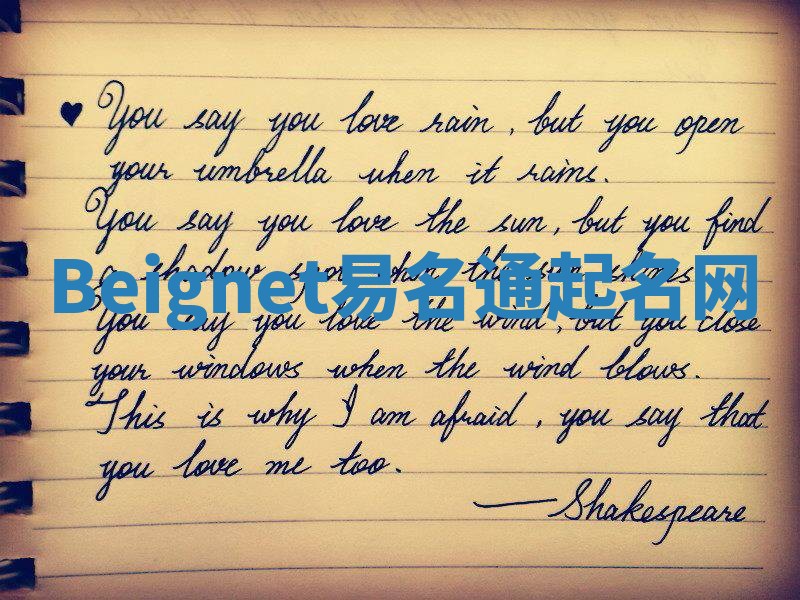 ♥ You say you love rain, but you open
your umbrella when it rains.
You say you love the sun, but you find
a shadow spot when the sun shines
Beignet易名通起名网
You say you love the wind, but you close
your windows when the wind blows.
This is why I am afraid, you say that
you love me too.
— Shakespeare